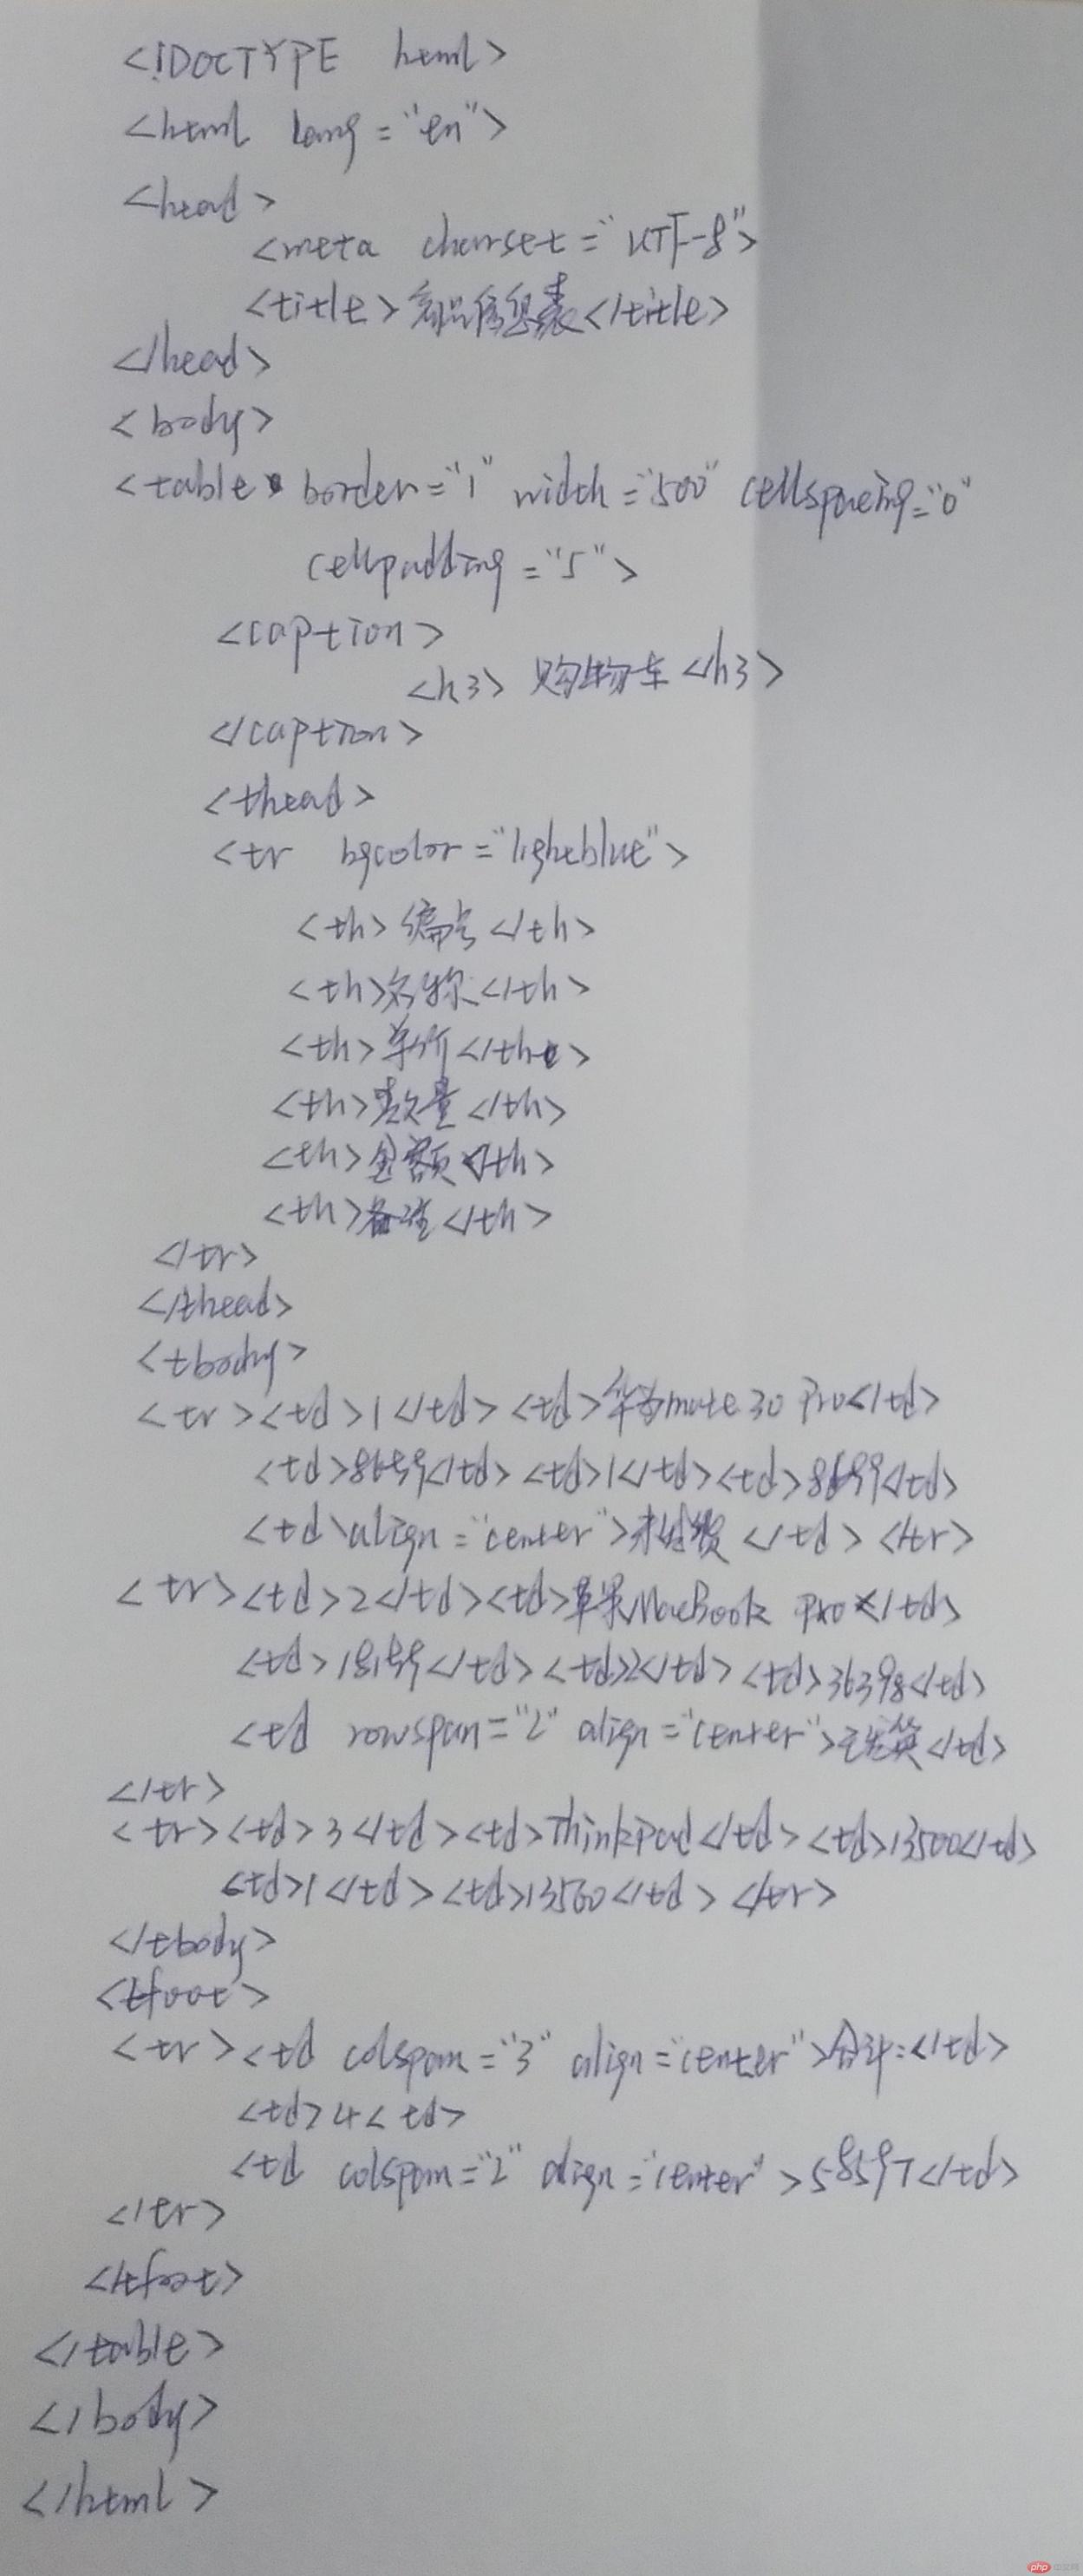 <!DOCTYPE html>
<html lang="en">
<head>
<meta charset="UTF-8">
<title>商品信息表</title>
</head>
<body>
<table border="1" width="500" cellspacing="0"
cellpadding="5">
<caption>
<h3> 购物车 </h3>
</caption>
<thead>
<tr bgcolor="lightblue">
<th>编号</th>
<th>名称</th>
<th>单价</th>
<th>数量</th>
<th>金额</th>
<th>备注</th>
</tr>
</thead>
<tbody>
<tr><td>1</td><td>华为mate 30 Pro</td>
<td></td><td>1</td><td>8699</td>
<td align="center"></td></tr>
<tr><td>2</td><td>苹果MacBook Pro</td>
<td></td><td>2</td><td>36398</td>
<td rowspan="2" align="center"></td>
</tr>
<tr><td>3</td><td>ThinkPad</td><td>13500</td>
<td>1</td><td>13500</td></tr>
</tbody>
<tfoot>
<tr><td colspan="3" align="center">合计:</td>
<td>4<td>
<td colspan="2" align="center">58597</td>
</tr>
</tfoot>
</table>
</body>
</html>
php